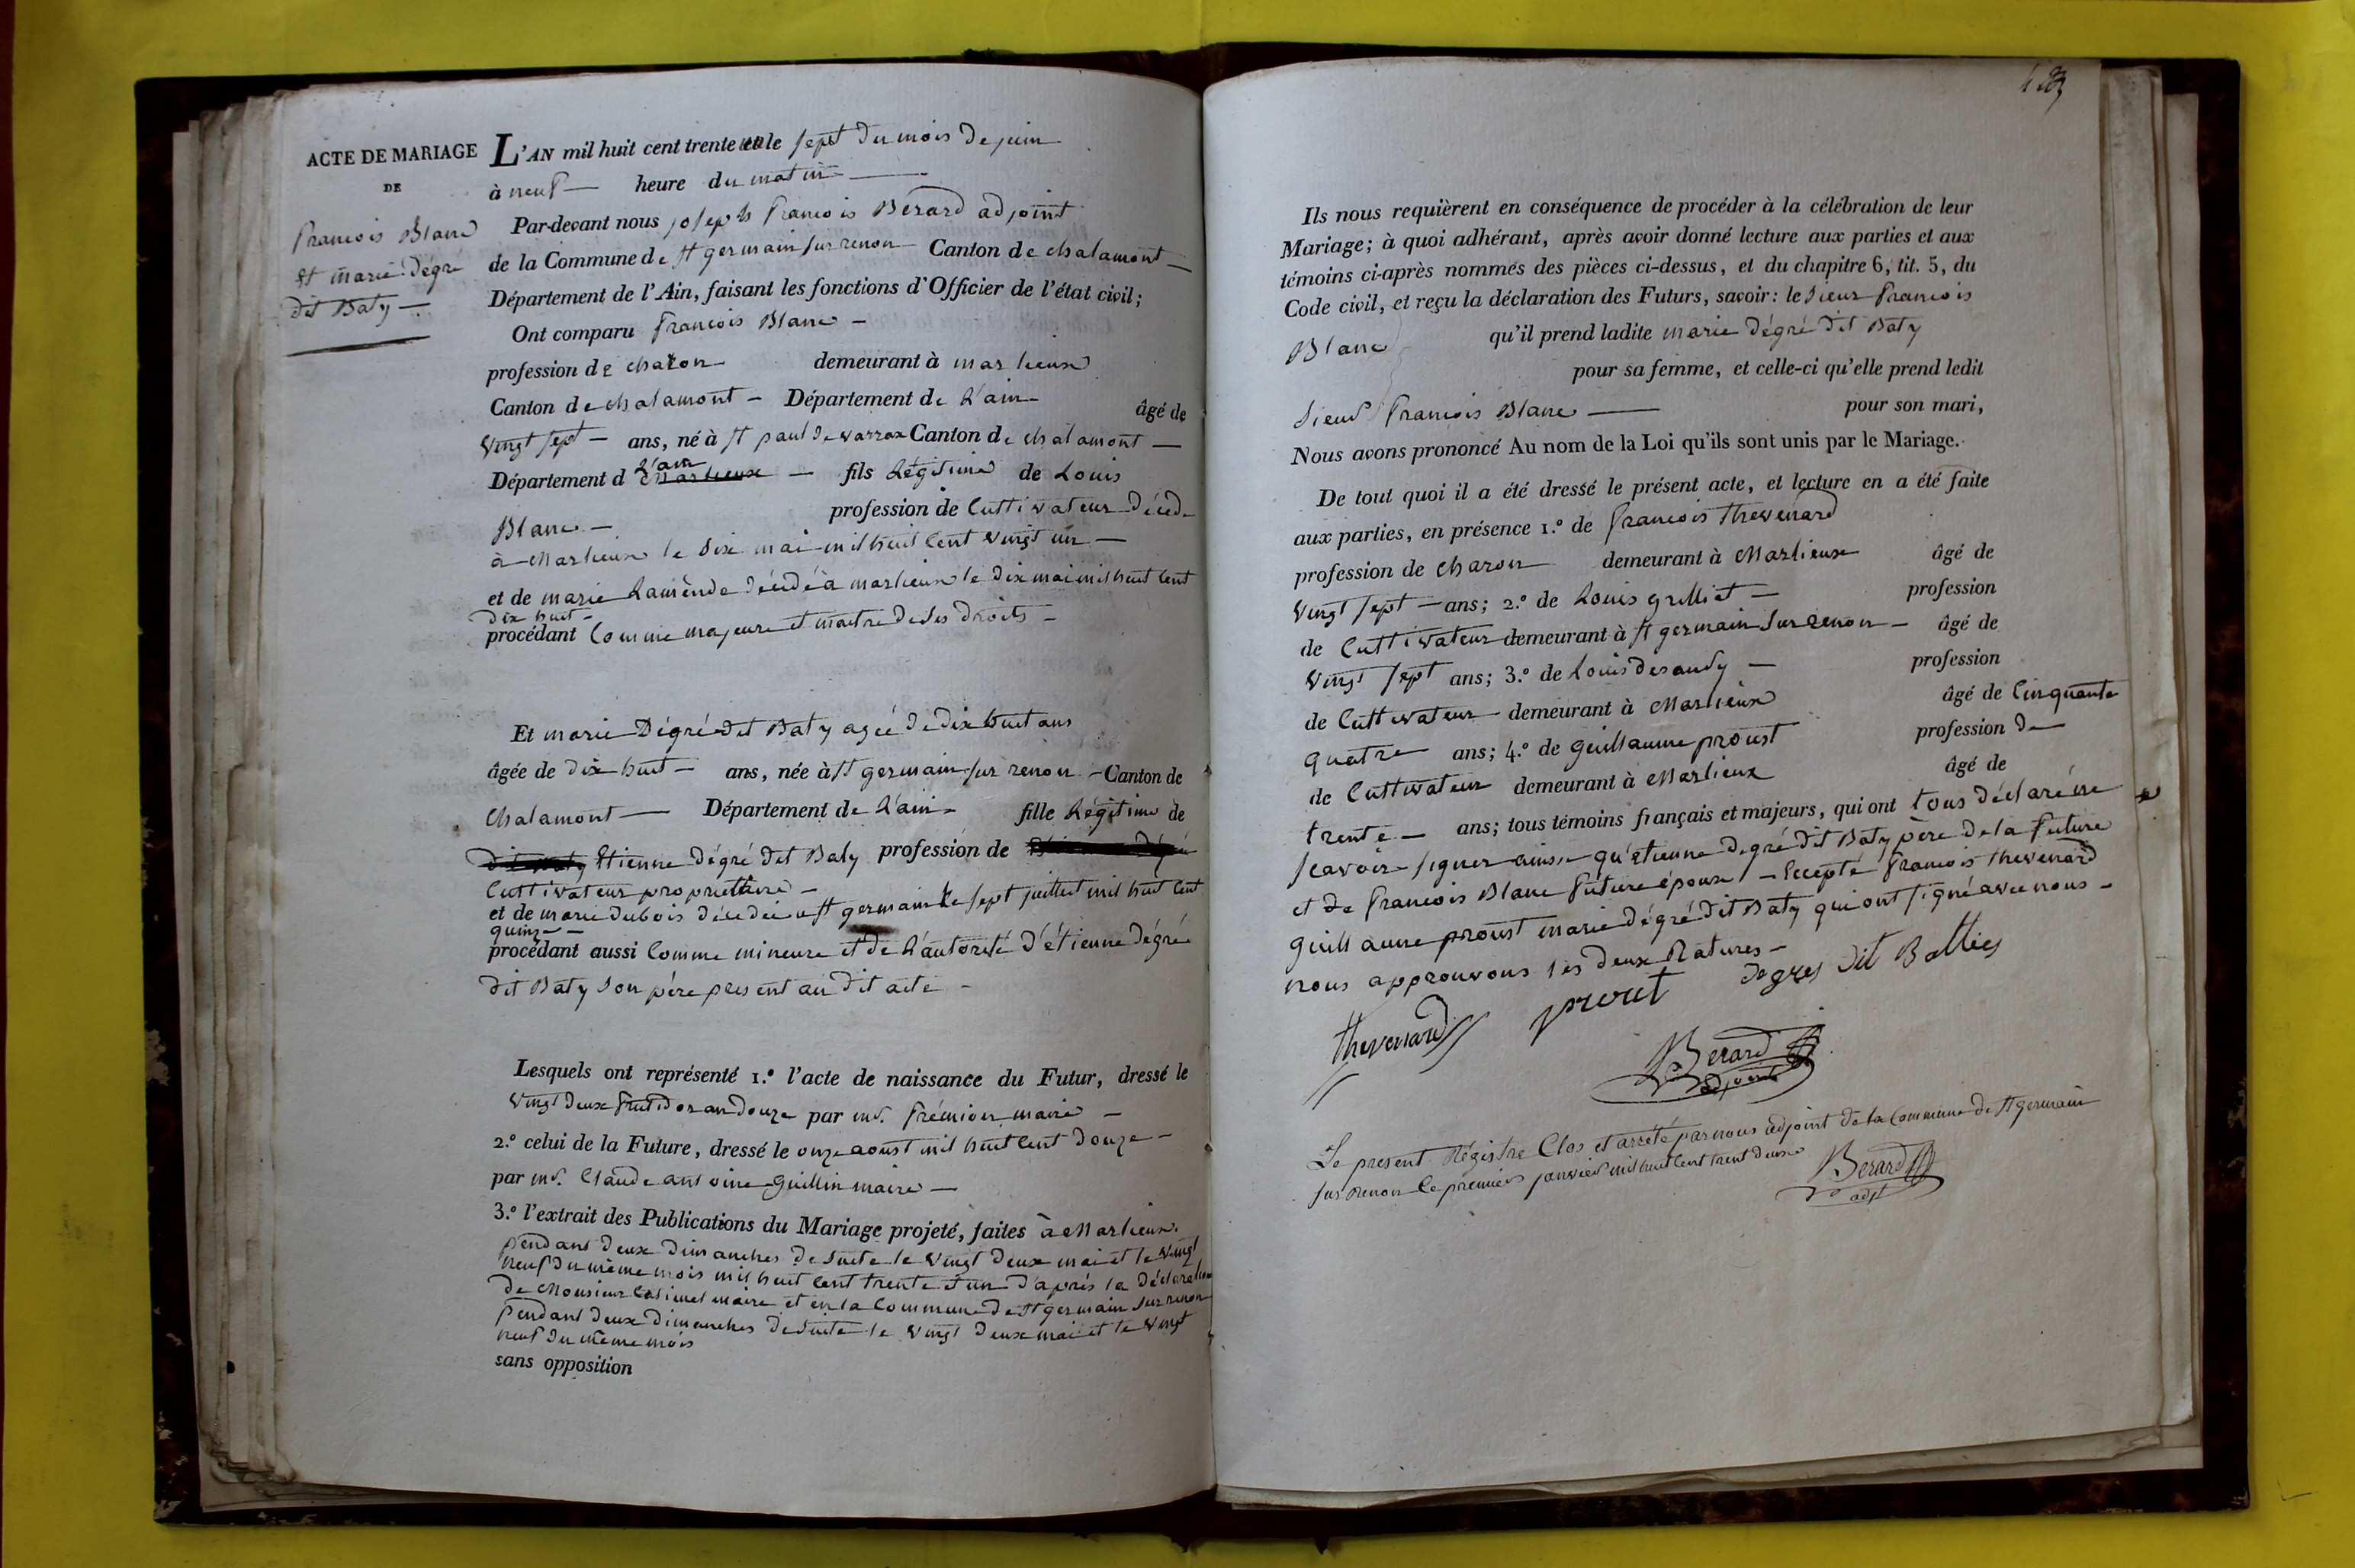 ACTE DE MARIAGE
DE
francois Blanc
et marie dégré
dit Baty
L'AN mil huit cent trente un le sept du mois de juin
à neuf heure du matin
Par-devant nous joseph francois Bérard adjoint
de la Commune de st germain sur renon Canton de chalamont
Département de l'Ain, faisant les fonctions d'Officier de l'état civil;
Ont comparu francois Blanc
profession de charon demeurant à marlieux
Canton de chalamont Département de L'ain âgé de
vingt sept ans, né à st paul de varrax Canton de chalamont
Département d L'ain Marlieux fils Légitime de Louis
Blanc profession de Cultivateur décédé
à Marlieux le dix mai mil huit Cent vingt un
et de marie décédé à marlieux le dix mai mil huit Cent
dix huit
procédant Comme majeure et maitre de ses droits
Et marie Dégré dit Baty agée de dix huit ans
âgée de dix huit ans, née à st germain sur renon Canton de
Chalamont Département de L'ain fille Légitime de
Etienne dégré dit Baty profession de
Cultivateur proprietaire
et de marie dubois décédée a st germain Le sept juillet mil huit Cent
quinze
procédant aussi Comme mineure et de L'autorité d'étienne dégré
dit Baty son père present au dit acte
Lesquels ont représenté 1.º l'acte de naissance du Futur, dressé le
vingt deux frutidor an douze par mr. frémion maire
2.º celui de la Future, dressé le onze aoust mil huit Cent douze
par mr. Claude antoine Guillin maire
3.º l'extrait des Publications du Mariage projeté, faites à Marlieux
pendant deux dimanches de suite le vingt deux mai et le vingt
neuf du même mois mil huit Cent trente et un d'aprés la déclaration
de Monsieur maire et en la Commune de st germain sur renon
pendant deux dimanches de suite le vingt deux mai et le vingt
neuf du même mois
sans opposition
Ils nous requièrent en conséquence de procéder à la célébration de leur
Mariage; à quoi adhérant, après avoir donné lecture aux parties et aux
témoins ci-après nommés des pièces ci-dessus, et du chapitre 6, tit. 5, du
Code civil, et reçu la déclaration des Futurs, savoir: le sieur francois
Blanc qu'il prend ladite marie dégré dit Baty
pour sa femme, et celle-ci qu'elle prend ledit
sieur francois Blanc pour son mari,
Nous avons prononcé Au nom de la Loi qu'ils sont unis par le Mariage.
De tout quoi il a été dressé le présent acte, et lecture en a été faite
aux parties, en présence 1.º de francois thevenard
profession de charon demeurant à Marlieux âgé de
vingt sept ans; 2.º de Louis grilliet profession
de Cultivateur demeurant à st germain sur renon âgé de
vingt sept ans; 3.º de Louis desaudy profession
de Cultivateur demeurant à Marlieux âgé de Cinquante
quatre ans; 4.º de guillaume proust profession de
de Cultivateur demeurant à Marlieux âgé de
trente ans; tous témoins français et majeurs, qui ont tous déclaré ne
scavoir signer ainsi qu'etienne degré dit Baty père de la future
et de francois Blanc future époux Excepté francois thevenard
guillaume proust marie dégré dit Baty qui ont signé avec nous
nous approuvons les deux Ratures
thevenard prout degres dit Batties
Berard
adjoint
Le present Régistre Clos et arrêté par nous adjoint de la Commune de st germain
sur renon le premier janvier mil huit Cent trent deux
Berard
adjt